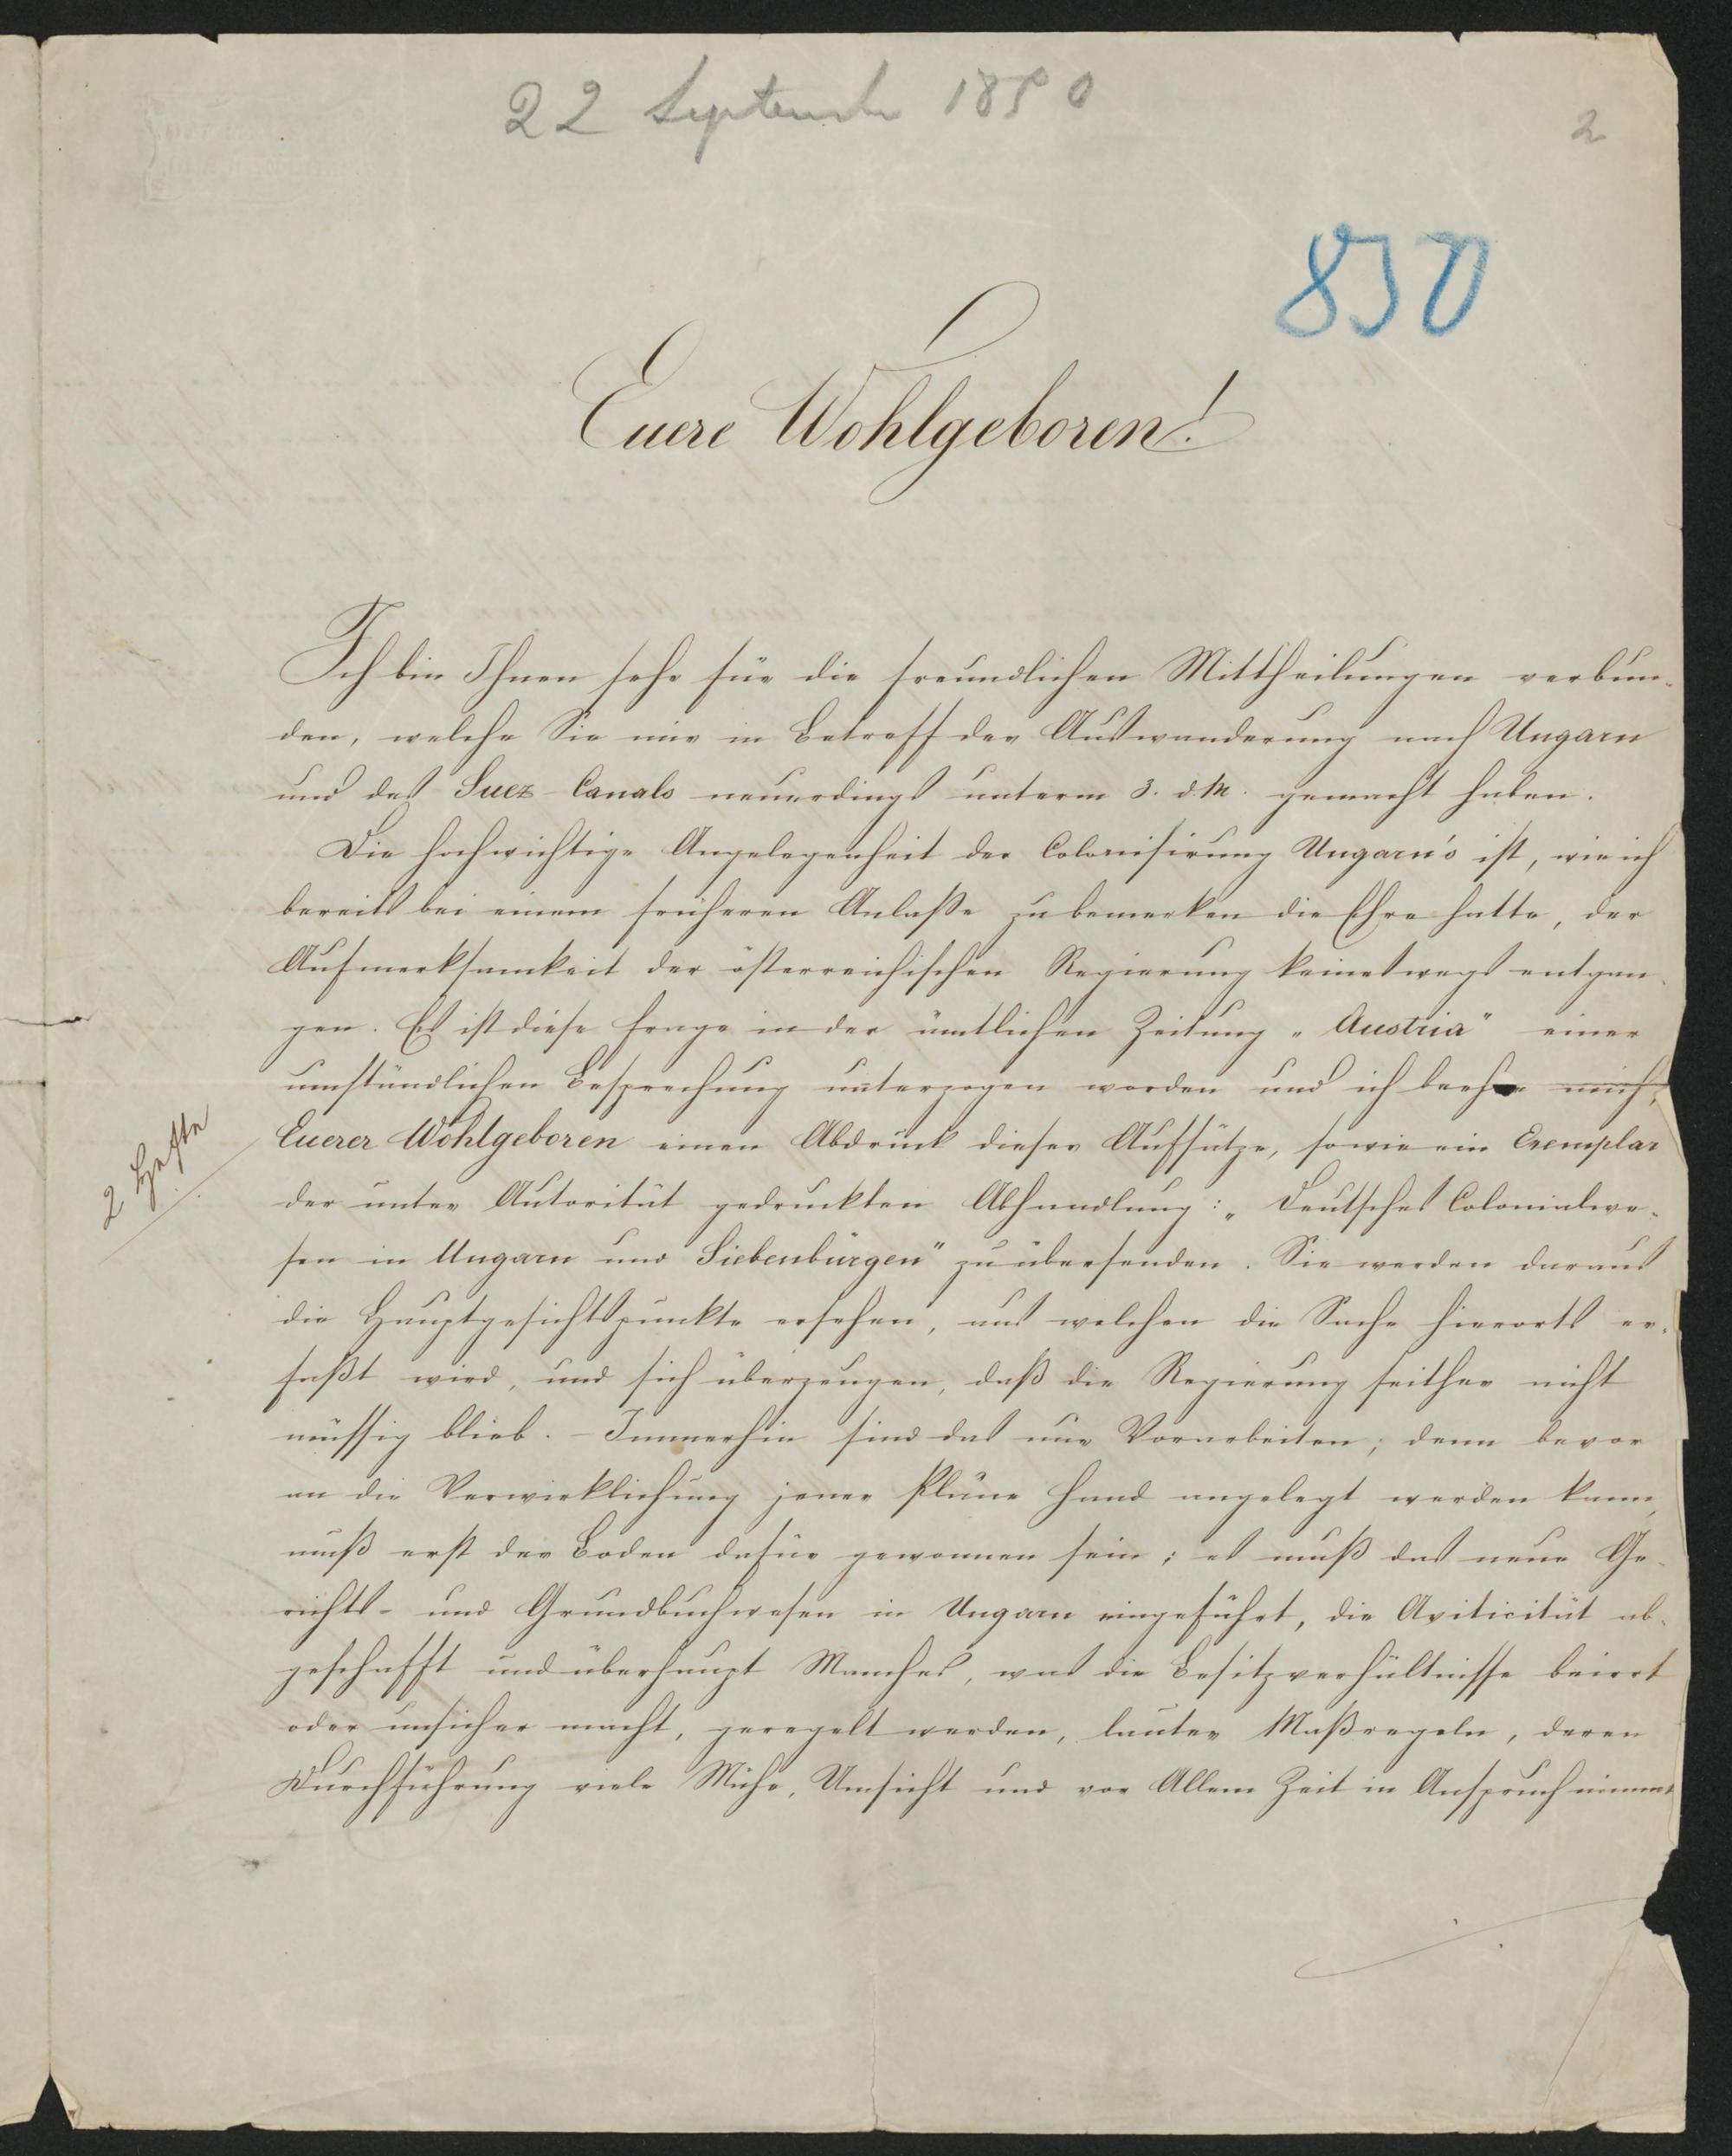 22 September 1850
2
850
Euere Wohlgeboren!
Ich bin Ihnen sehr für die freundlichen Mittheilungen verbun-
den, welche Sie mir in Betreff der Auswanderung nach Ungarn
und des Suez Canals neuerdings unterm 3. d. M. gemacht haben.
Die hochwichtige Angelegenheit der Colonisirung Ungarn's ist, wie ich
bereits bei einem früheren Anlaße zu bemerken die Ehre hatte, der
Aufmerksamkeit der österreichischen Regierung keineswegs entgan-
gen. Es ist diese Frage in der ämtlichen Zeitung „Austria" einer
umständlichen Besprechung unterzogen worden und ich beehre mich,
Euerer Wohlgeboren einen Abdruck dieser Aufsätze, sowie ein Exemplar
2 Hefte
der unter Autorität gedruckten Abhandlung: „Deutsches Colonialwe-
sen in Ungarn und Siebenbürgen" zu übersenden. Sie werden daraus
die Hauptgesichtspunkte ersehen, aus welchen die Sache hierorts er-
faßt wird, und sich überzeugen, daß die Regierung seither nicht
müssig blieb. – Immerhin sind das nur Vorarbeiten; denn bevor
an die Verwirklichung jener Pläne Hand angelegt werden kann,
muß erst der Boden dafür gewonnen sein; es muß das neue Ge-
richts- und Grundbuchwesen in Ungarn eingeführt, die Aviticität ab-
geschafft und überhaupt Manches, was die Besitzverhältnisse beirrt
oder unsicher macht, geregelt werden, lauter Maßregeln, deren
Durchführung viele Mühe, Umsicht und vor Allem Zeit in Anspruch nimmt